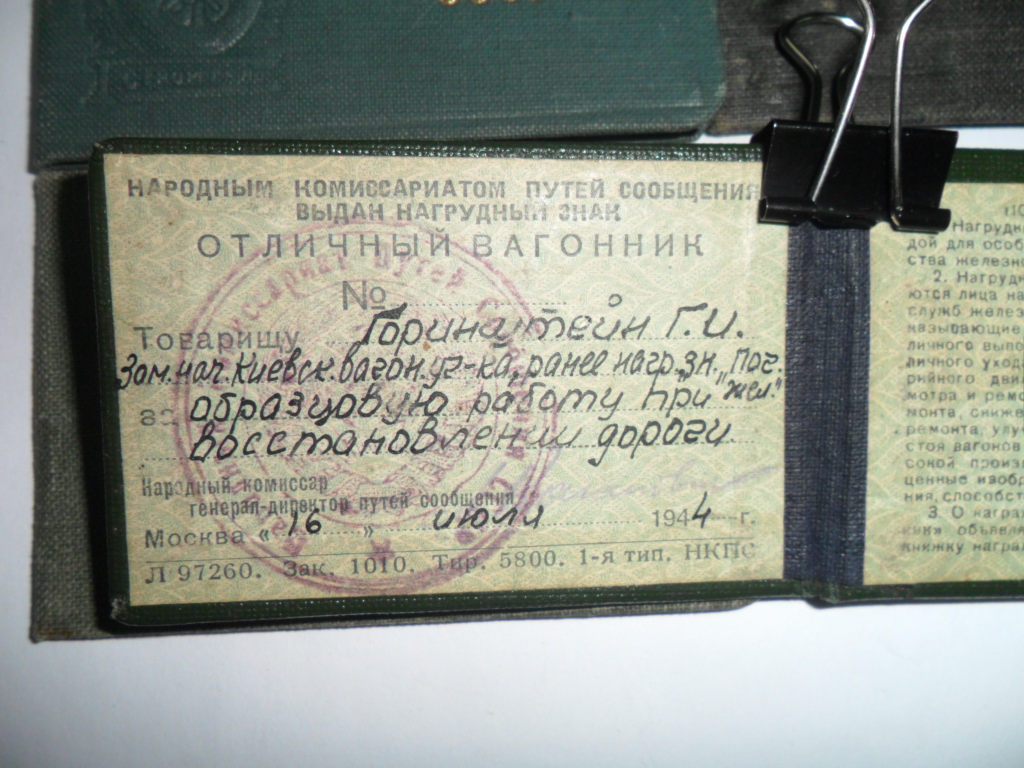 НАРОДНЫМ КОМИССАРИАТОМ ПУТЕЙ СООБЩЕНИЯ
ВЫДАН НАГРУДНЫЙ ЗНАК
ОТЛИЧНЫЙ ВАГОННИК
№
Товарищу Горинштейн Г.И.
Зам. нач. Киевск. вагон. уч-ка, ранее нагр. зн. „Поч.
жел."
за образцовую работу при
восстановлении дороги
Народный комиссар
генерал-директор путей сообщения
Москва « 16 » июля 1944 г.
Л 97260. Зак. 1010. Тир. 5800. 1-я тип. НКПС
Нагрудн
дой для особ
ства железно
2. Нагрудн
ются лица на
служб желез
казывающие
личного выпо
личного уход
рийного дви
мотра и ремо
монта, сниже
ремонта, улу
стоя вагонов
сокой произ
ценные изобр
ния, способст
3. О награ
ник» объявля
книжку награ